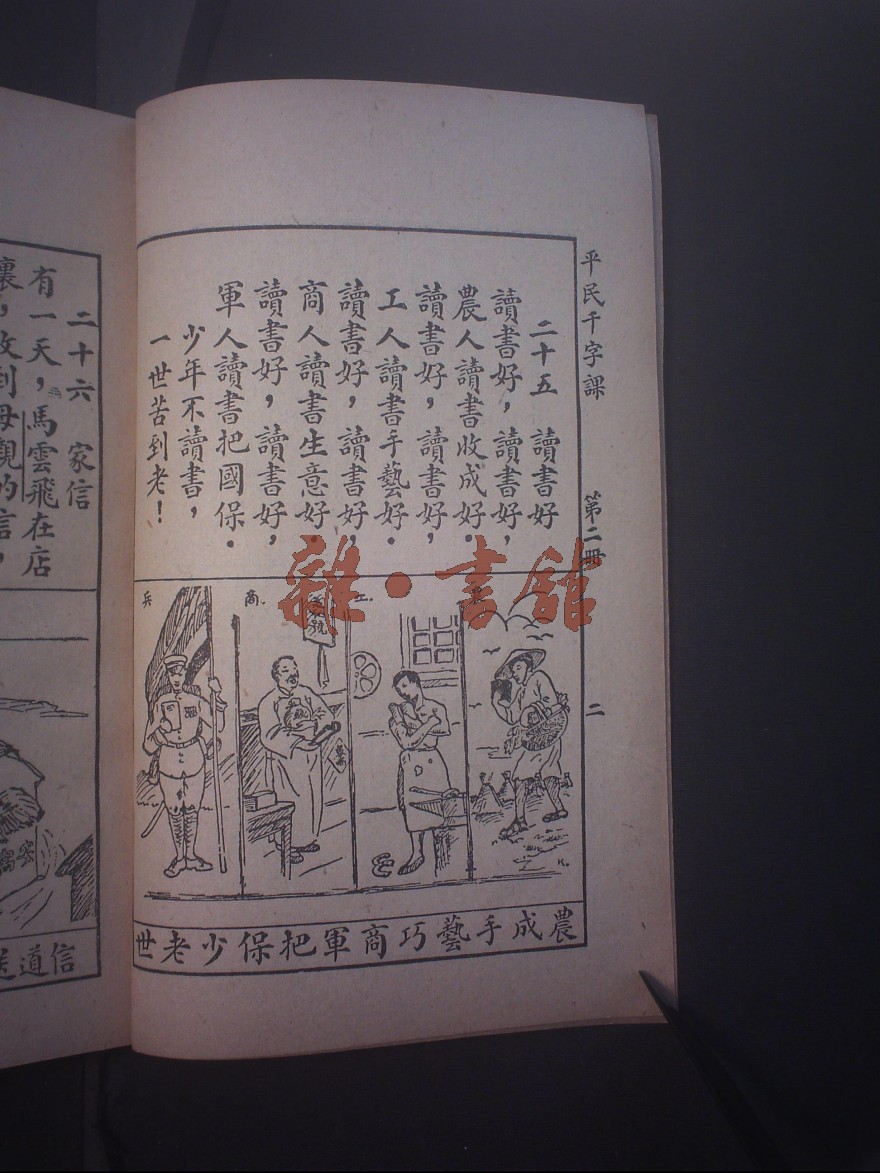 平民千字課 第二冊 二
二十五 讀書好
讀書好，讀書好，
農人讀書收成好．
讀書好，讀書好，
工人讀書手藝好．
讀書好，讀書好，
商人讀書生意好．
讀書好，讀書好，
軍人讀書把國保．
少年不讀書，
一世苦到老！
工
商
兵
農成手藝巧商軍把保少老世
二十六 家信
有一天，馬雲飛在店
裏，收到母親的信，
信道送
雜·書館